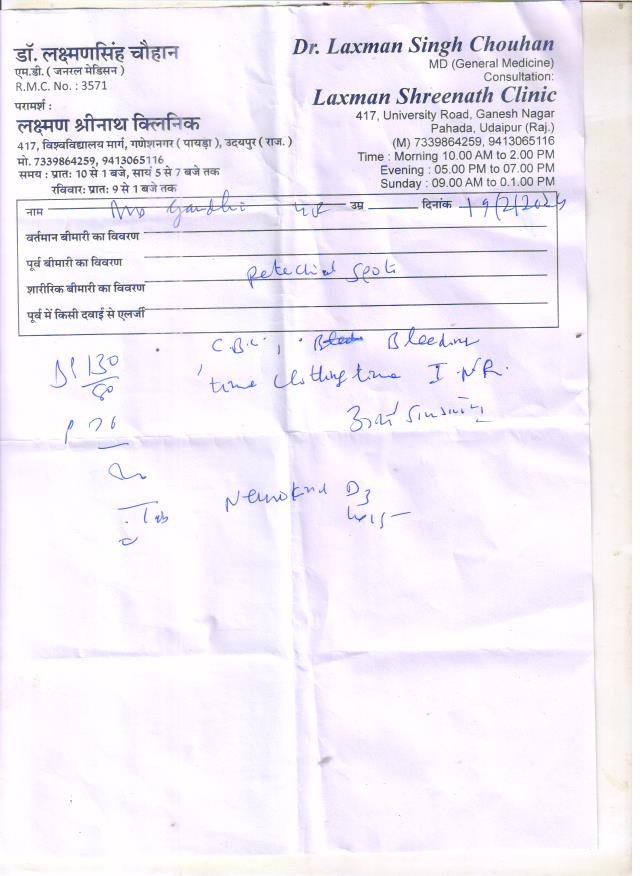 डॉ. लक्ष्मणसिंह चौहान
एम.डी. ( जनरल मेडिसन )
R.M.C. No. : 3571
परामर्श :
लक्ष्मण श्रीनाथ क्लिनिक
417, विश्वविद्यालय मार्ग, गणेशनगर ( पायड़ा ), उदयपुर ( राज. )
मो. 7339864259, 9413065116
समय : प्रातः 10 से 1 बजे, सायं 5 से 7 बजे तक
रविवार: प्रातः 9 से 1 बजे तक
Dr. Laxman Singh Chouhan
MD (General Medicine)
Consultation:
Laxman Shreenath Clinic
417, University Road, Ganesh Nagar
Pahada, Udaipur (Raj.)
(M) 7339864259, 9413065116
Time : Morning 10.00 AM to 2.00 PM
Evening : 05.00 PM to 07.00 PM
Sunday : 09.00 AM to 0.1.00 PM
नाम Gandhi उम्र दिनांक 19/2/2024
वर्तमान बीमारी का विवरण
पूर्व बीमारी का विवरण
petechial spots
शारीरिक बीमारी का विवरण
पूर्व में किसी दवाई से एलर्जी
C.B.C., Bleeding
time clotting time I.N.R.
130/80
Tab
D3